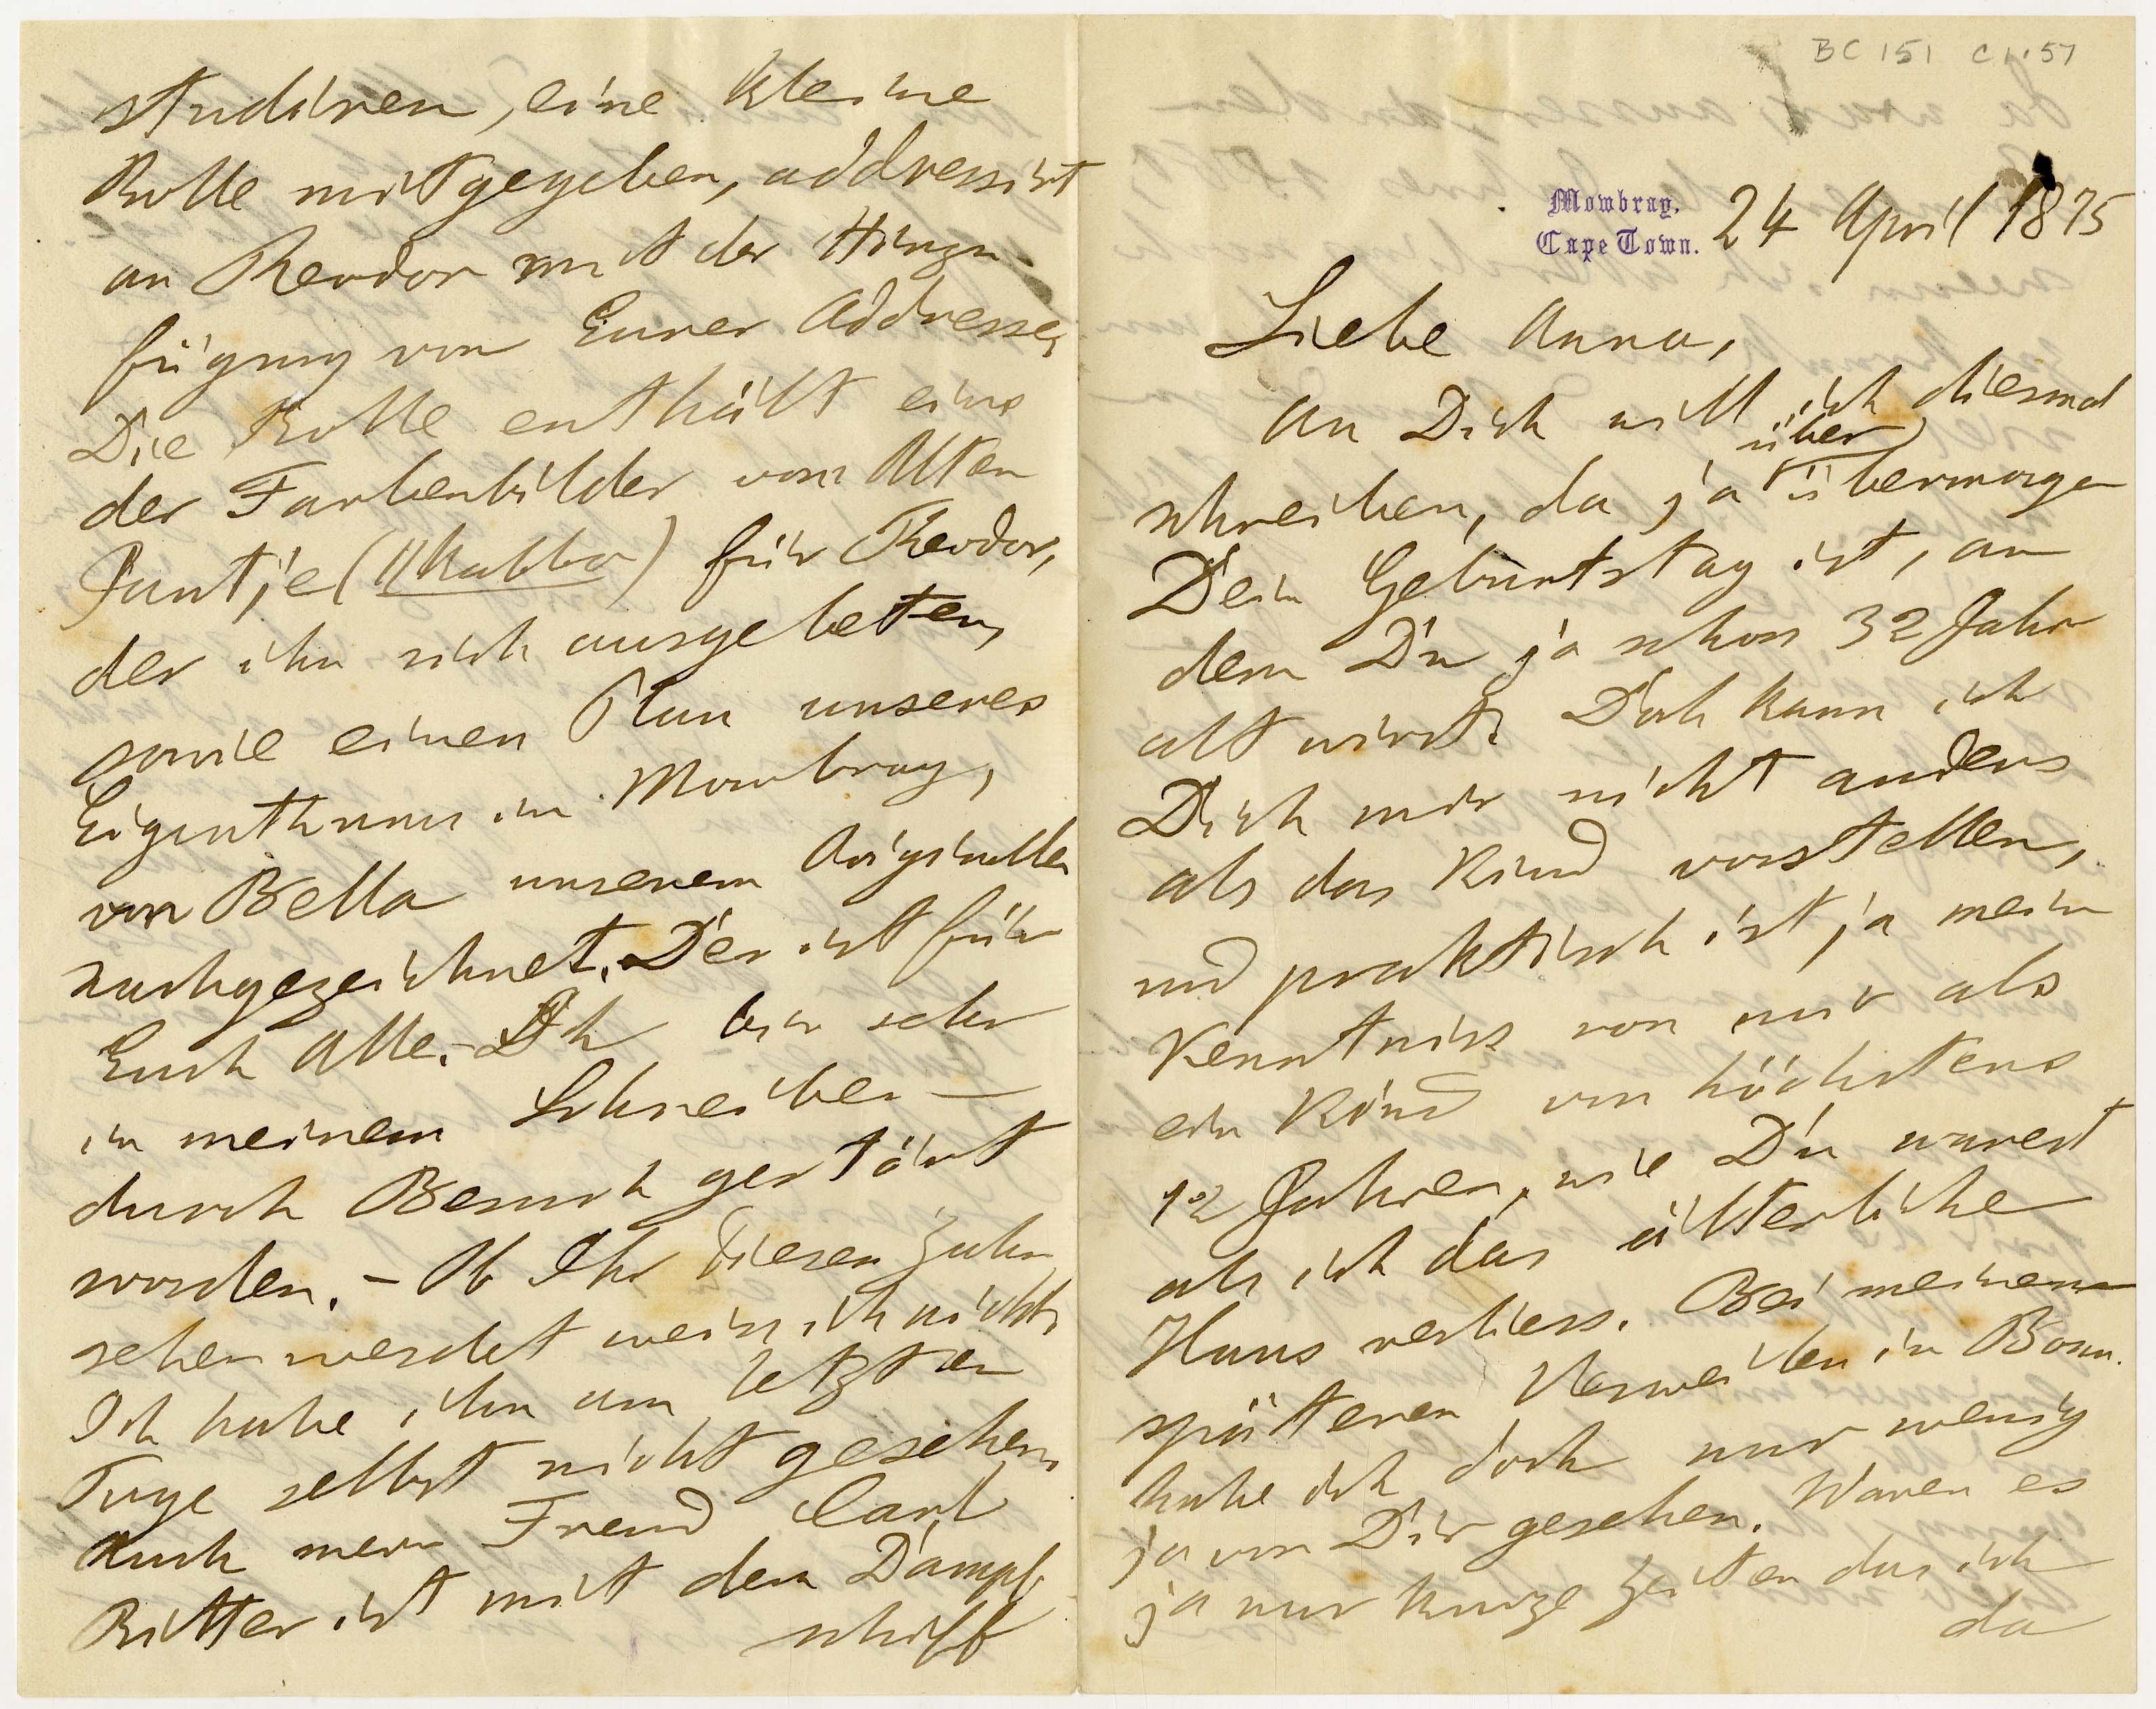 BC 151 C1.57
Mowbray,
Cape Town. 24 April 1875
Liebe Anna,
An Dich will ich diesmal
über
schreiben, da ja übermorgen
Dein Geburtstag ist, an
dem Du ja schon 32 Jahr
alt wirst. Doch kann ich
Dich mir nicht anders
als das Kind vorstellen,
und praktisch ist ja mein
Kenntniss von nur als
ein Kind von höchstens
12 Jahren, wie Du warest
als ich das älterliche
Haus verliess. Bei meinem
späteren Verweilen in Bonn
habe ich doch nur wenig
ja von Dir gesehen. Waren es
ja nur kurze Zeiten das ich
da
studiren, eine kleine
Rolle mitgegeben, addressirt
an Theodor mit der Hinzu-
fügung von Eurer Addresse,
Die Rolle enthält eins
der Farbenbilder vom Alten
Jantje (||Kabbo) für Theodor,
der ihn sich ausgebeten,
sowie einen Plan unseres
Eigenthums in Mowbray,
von Bella unserem Originellen
nachgezeichnet. Der ist für
Euch Alle. – Ich bin sehr
in meinem Schreiben –
durch Besuch gestört
worden. – Ob Ihr diesen
sehen werdet weiss ich nicht,
Ich habe ihn am letzten
Tage selbst nicht gesehen,
Auch mein Freund Carl
Ritter ist mit dem Dampf-
schiff